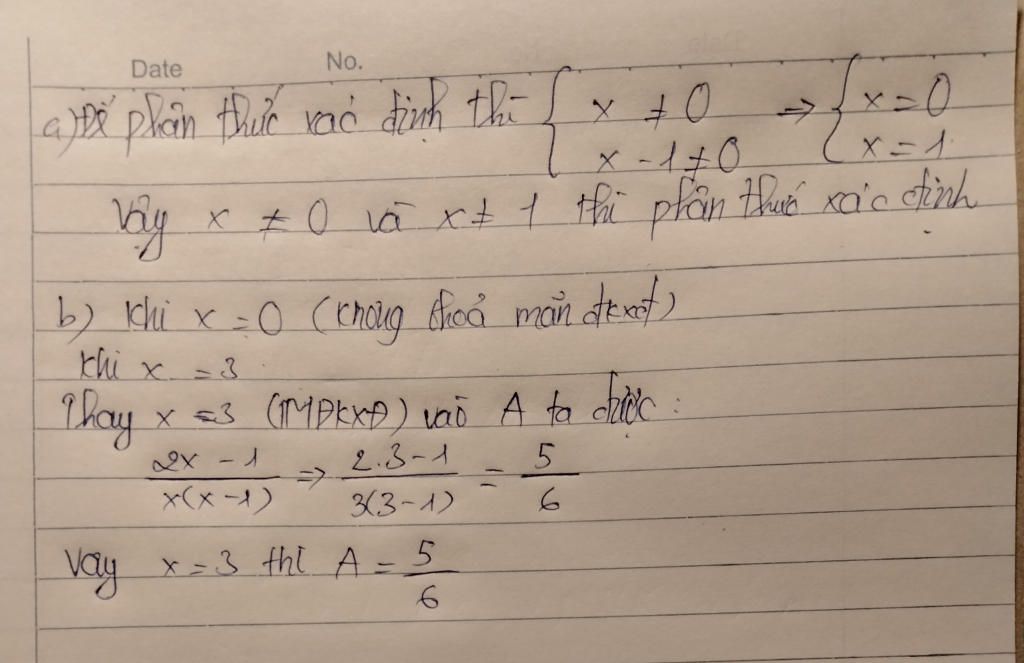 Date No.
a) Để phân thức xác định thì { x ≠ 0 => { x = 0
x - 1 ≠ 0 x = 1
Vậy x ≠ 0 và x ≠ 1 thì phân thức xác định
b) Khi x = 0 (không thoả mãn đkxđ)
Khi x = 3
Thay x = 3 (TMĐKXĐ) vào A ta được:
2x - 1 / x(x - 1) => 2.3 - 1 / 3(3 - 1) = 5 / 6
Vậy x = 3 thì A = 5 / 6